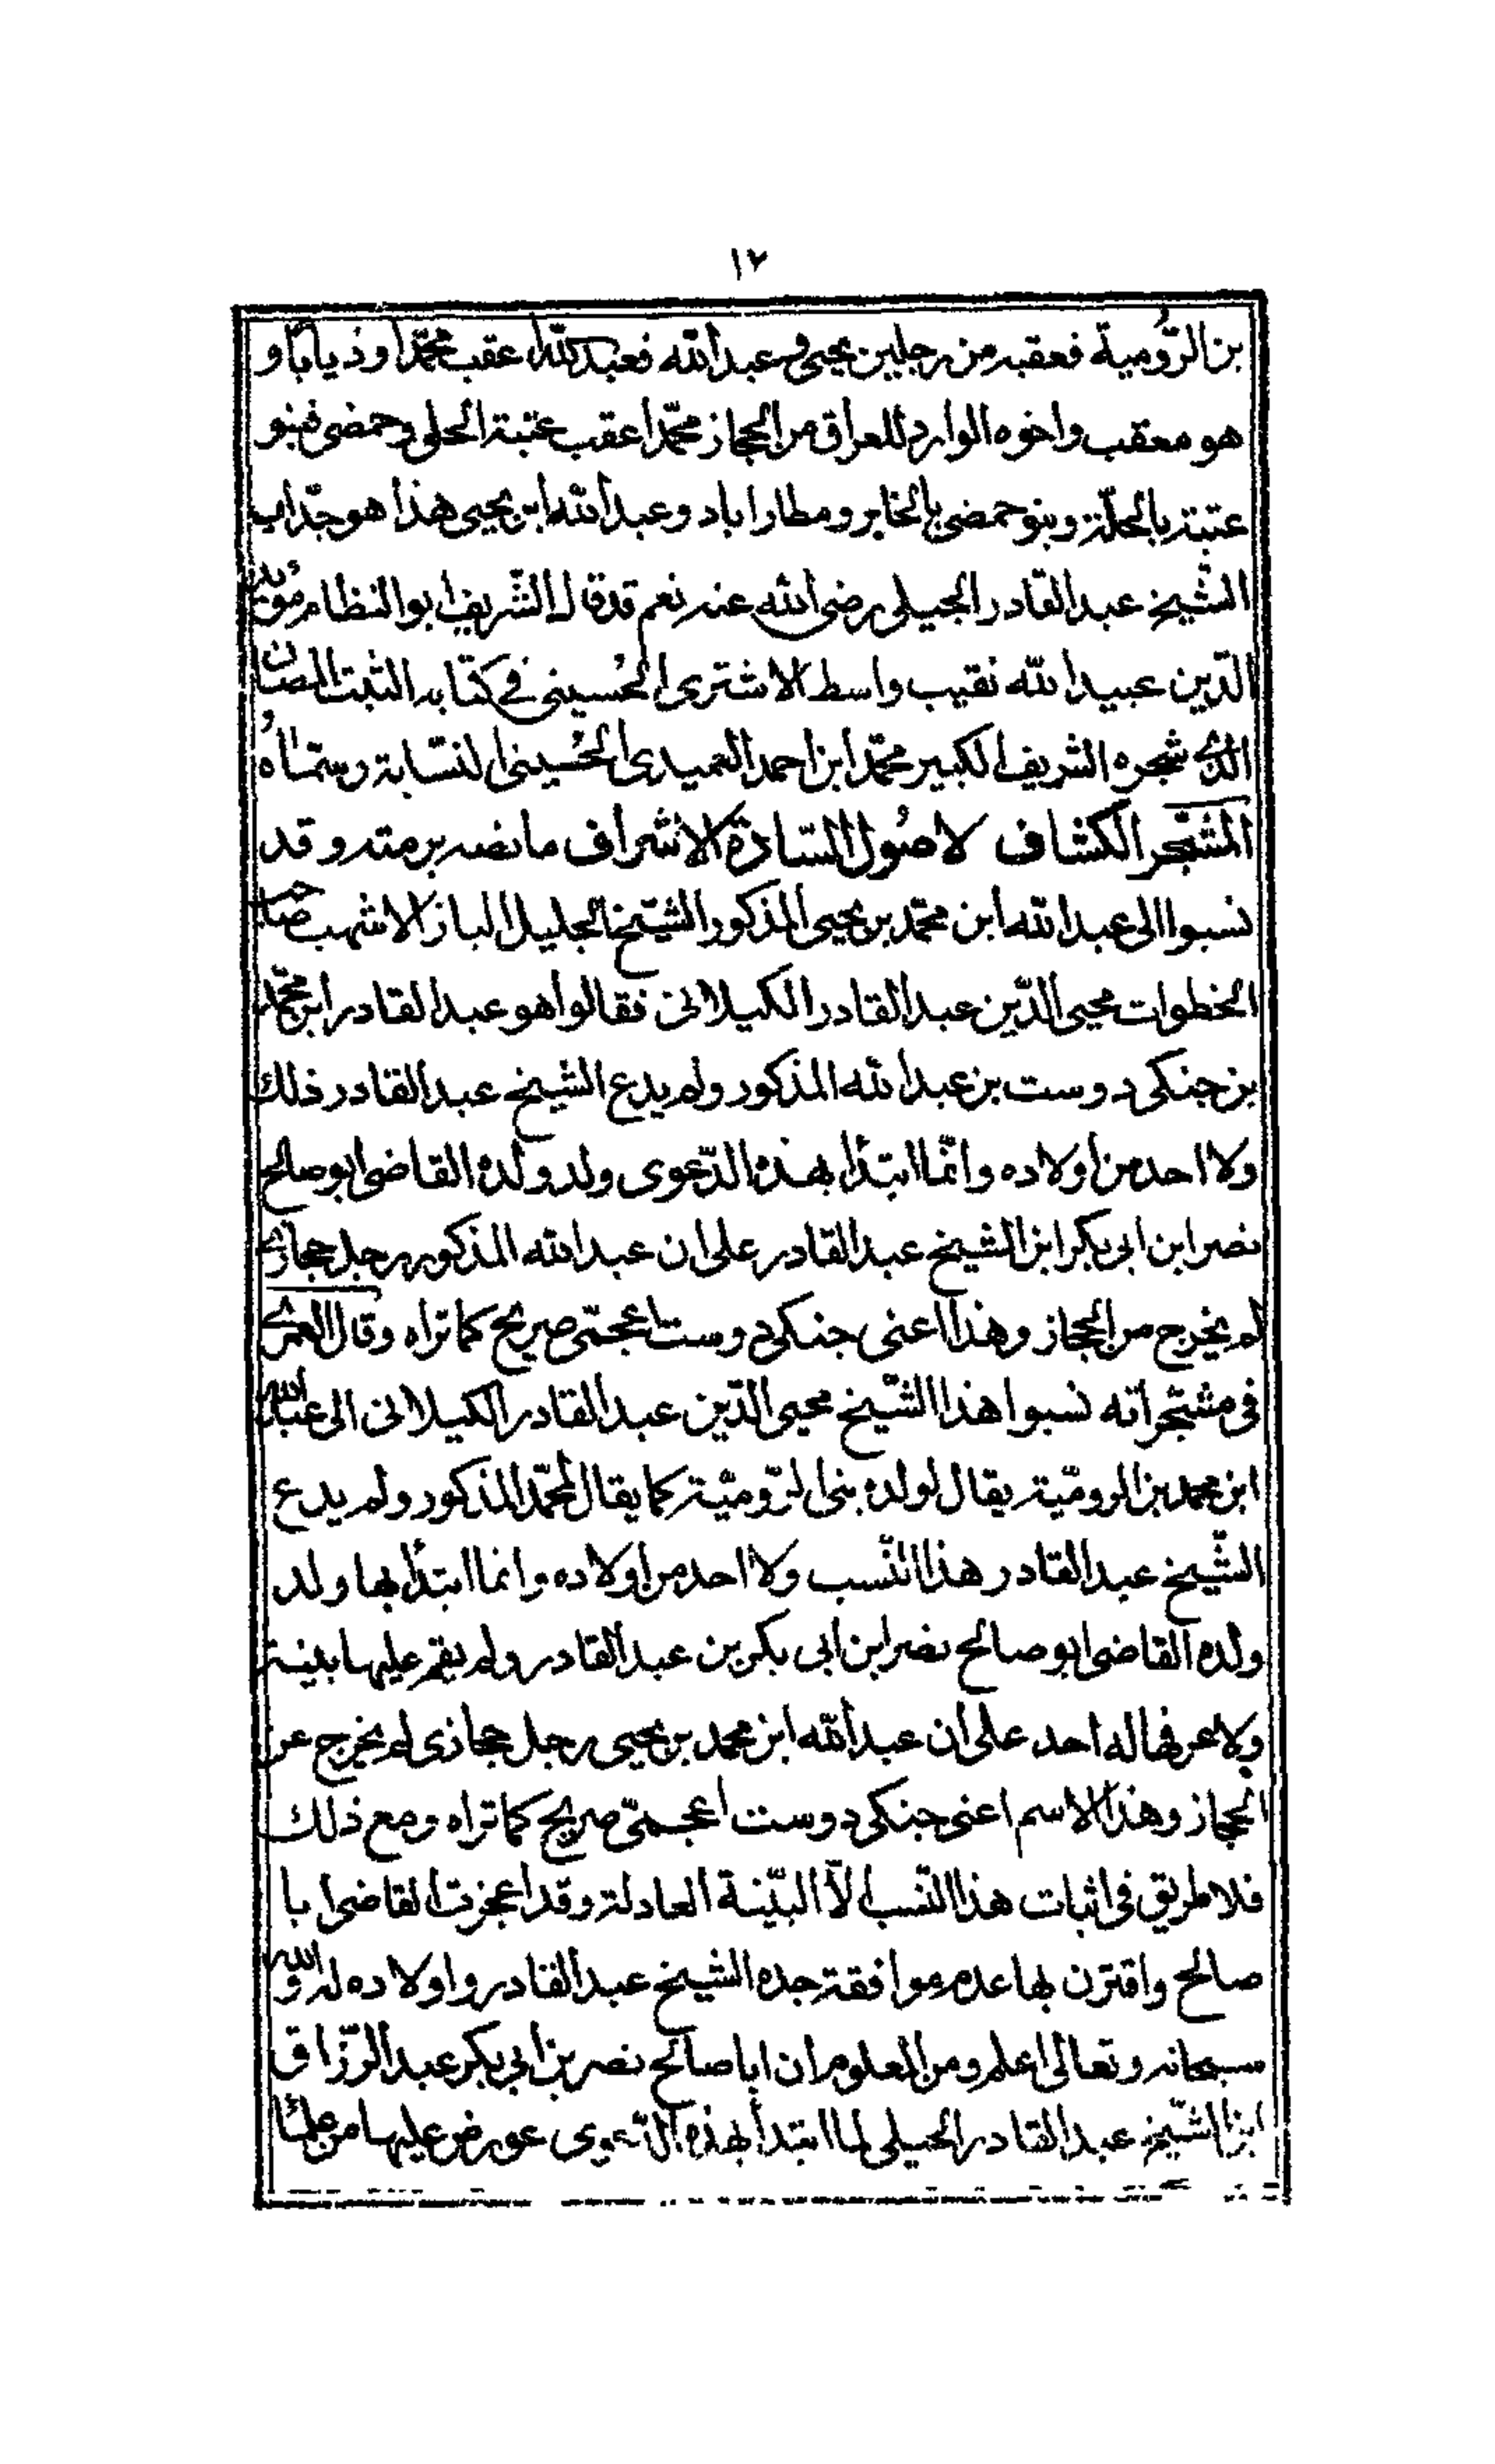 ١٢
بن الرومية فعقبه من رجلين يحيى وعبدالله فعبدالله اعقب محمّدا وذيابا و
هو معقب واخوه الوارد للعراق من الحجاز محمّد اعقب عتبة الحلى وحمضى فبنو
عتبة بالحلّة وبنو حمضى بالخاير ومطاراباد وعبدالله ابن يحيى هذا هو جدّ اب
الشيخ عبدالقادر الجيلى رضى الله عنه نعم قد قال الشريف ابوالنظام مؤيد
الدّين عبيدالله نقيب واسط الاشترى الحُسينى فى كتابه الثبت المصان
الذى شجره الشريف الكبير محمّد ابن احمد العميدى الحُسينى النسّابة وسمّاهُ
المشجّر الكشاف لاصُول السّادة الاشراف مانصه برمته وقد
نسبوا الى عبدالله ابن محمّد بن يحيى المذكور الشيّخ الجليل الباز الاشهب صاحب
الخطوات محيى الدّين عبدالقادر الكيلانى فقالوا هو عبدالقادر ابن محمّد
بن جنكى دوست بن عبدالله المذكور ولم يدع الشيخ عبدالقادر ذلك
ولا احد من اولاده وانّما ابتدأ بهذه الدّعوى ولد ولده القاضى ابوصالح
نصر ابن ابى بكر ابن الشيخ عبدالقادر على ان عبدالله المذكور رجل حجازى
لم يخرج من الحجاز وهذا اعنى جنكى دوست اعجمّى صريح كما تراه وقال العمرى
فى مشجّراته نسبوا هذا الشّيخ محيى الدّين عبدالقادر الكيلانى الى عبدالله
ابن محمد بن الروميّة يقال لولده بنى الرّوميّة كما يقال لمحمّد المذكور ولم يدع
الشّيخ عبدالقادر هذا النّسب ولا احد من اولاده وانما ابتدأ بها ولد
ولده القاضى ابوصالح نصر ابن ابى بكر بن عبدالقادر ولم يقم عليها بينة
ولا عرفها له احد على ان عبدالله ابن محمد بن يحيى رجل حجازى لم يخرج عن
الحجاز وهذا الاسم اعنى جنكى دوست اعجمىّ صريح كما تراه ومع ذلك
فلا طريق فى اثبات هذا النّسب الّا البيّنة العادلة وقد اعجزت القاضى ابا
صالح واقترن بها عدم موافقة جده الشيخ عبدالقادر واولاده له والله
سبحانه وتعالى اعلم ومن المعلوم ان اباصالح نصر بن ابى بكر عبدالرّزاق
ابن الشيّخ عبدالقادر الجيلى لما ابتدأ بهذه الدّعوى عورض عليها من علمآ